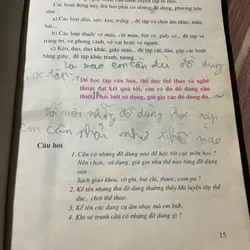 Các hoạt động này đòi hỏi phải có những đồ dùng, phương tiện
như :
a) Các loại đàn, sáo, kèn, trống... để tập và chơi âm nhạc, múa,
hát...
b) Các loại thước vẽ màu, chì màu, bút vẽ, giấy vẽ... để tập vẽ
trang trí, vẽ phong cảnh, vẽ vật hoặc vẽ người.
c) Kéo, dao, dao khắc, giấy màu... để tập cắt, dán, gấp các hình
bằng giấy, tập khắc tranh, tượng.
đồ dùng
Để học tập văn hóa, thể dục thể thao và nghệ
thuật đạt kết quả tốt, cần có đủ đồ dùng cần
thiết. Phải biết sử dụng, giữ gìn các đồ dùng đó.
đồ dùng học tập
em cần phải như thế nào
Câu hỏi
1. Cần có những đồ dùng nào để học tốt các môn học ?
Nên chọn, sử dụng, giữ gìn như thế nào từng đồ dùng
sau :
Sách giáo khoa, vở ghi, bút chì, thước, com-pa ?
2. Kể tên những thứ đồ dùng thường thấy khi luyện tập thể
dục, chơi thể thao.
3. Kể tên các dụng cụ âm nhạc mà em biết.
4. Khi vẽ tranh cần có những đồ dùng gì ?
15